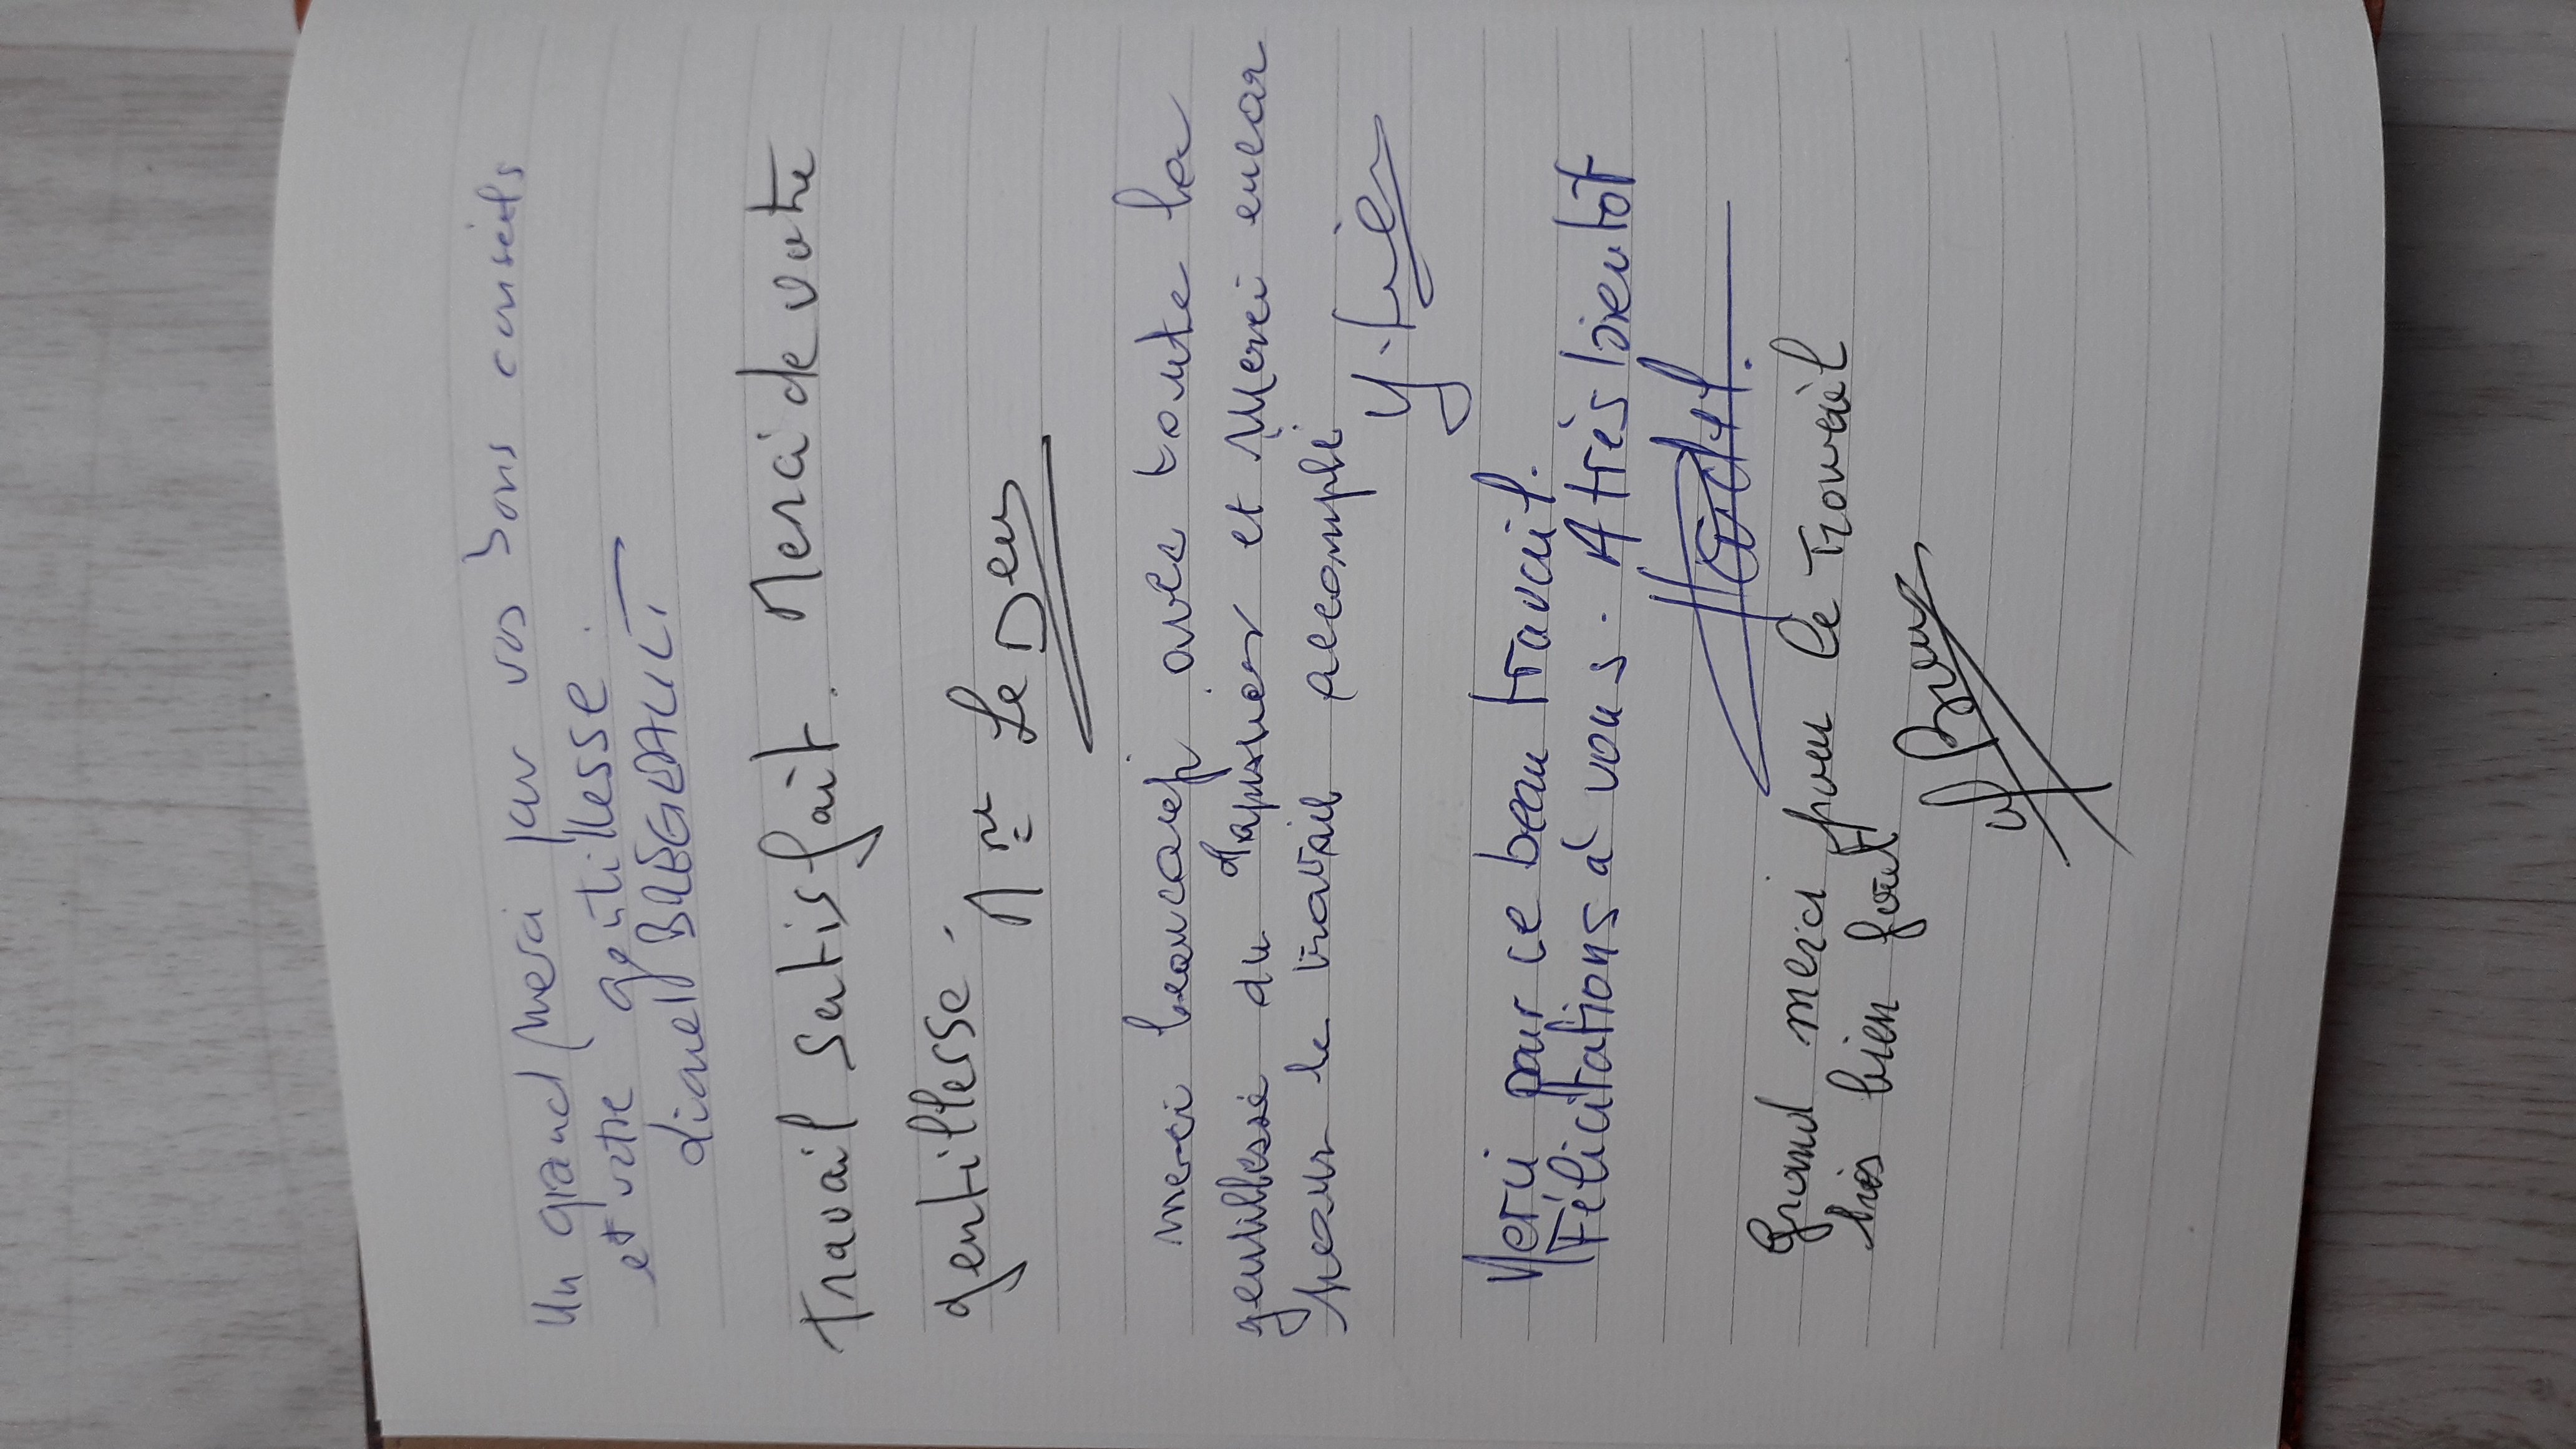 Un grand merci par vos bons conseils
et votre gentillesse.
Lionel BRÉGEAULT
Travail Satisfait. Merci de votre
gentillesse.
Mme Le Deus
merci beaucoup avec toute la
gentillesse du Tapissier et Merci encor
pour le travail accompli
Y.
Merci pour ce beau travail.
Félicitations à vous. A très bientôt
Grand merci pour le Travail
très bien fait